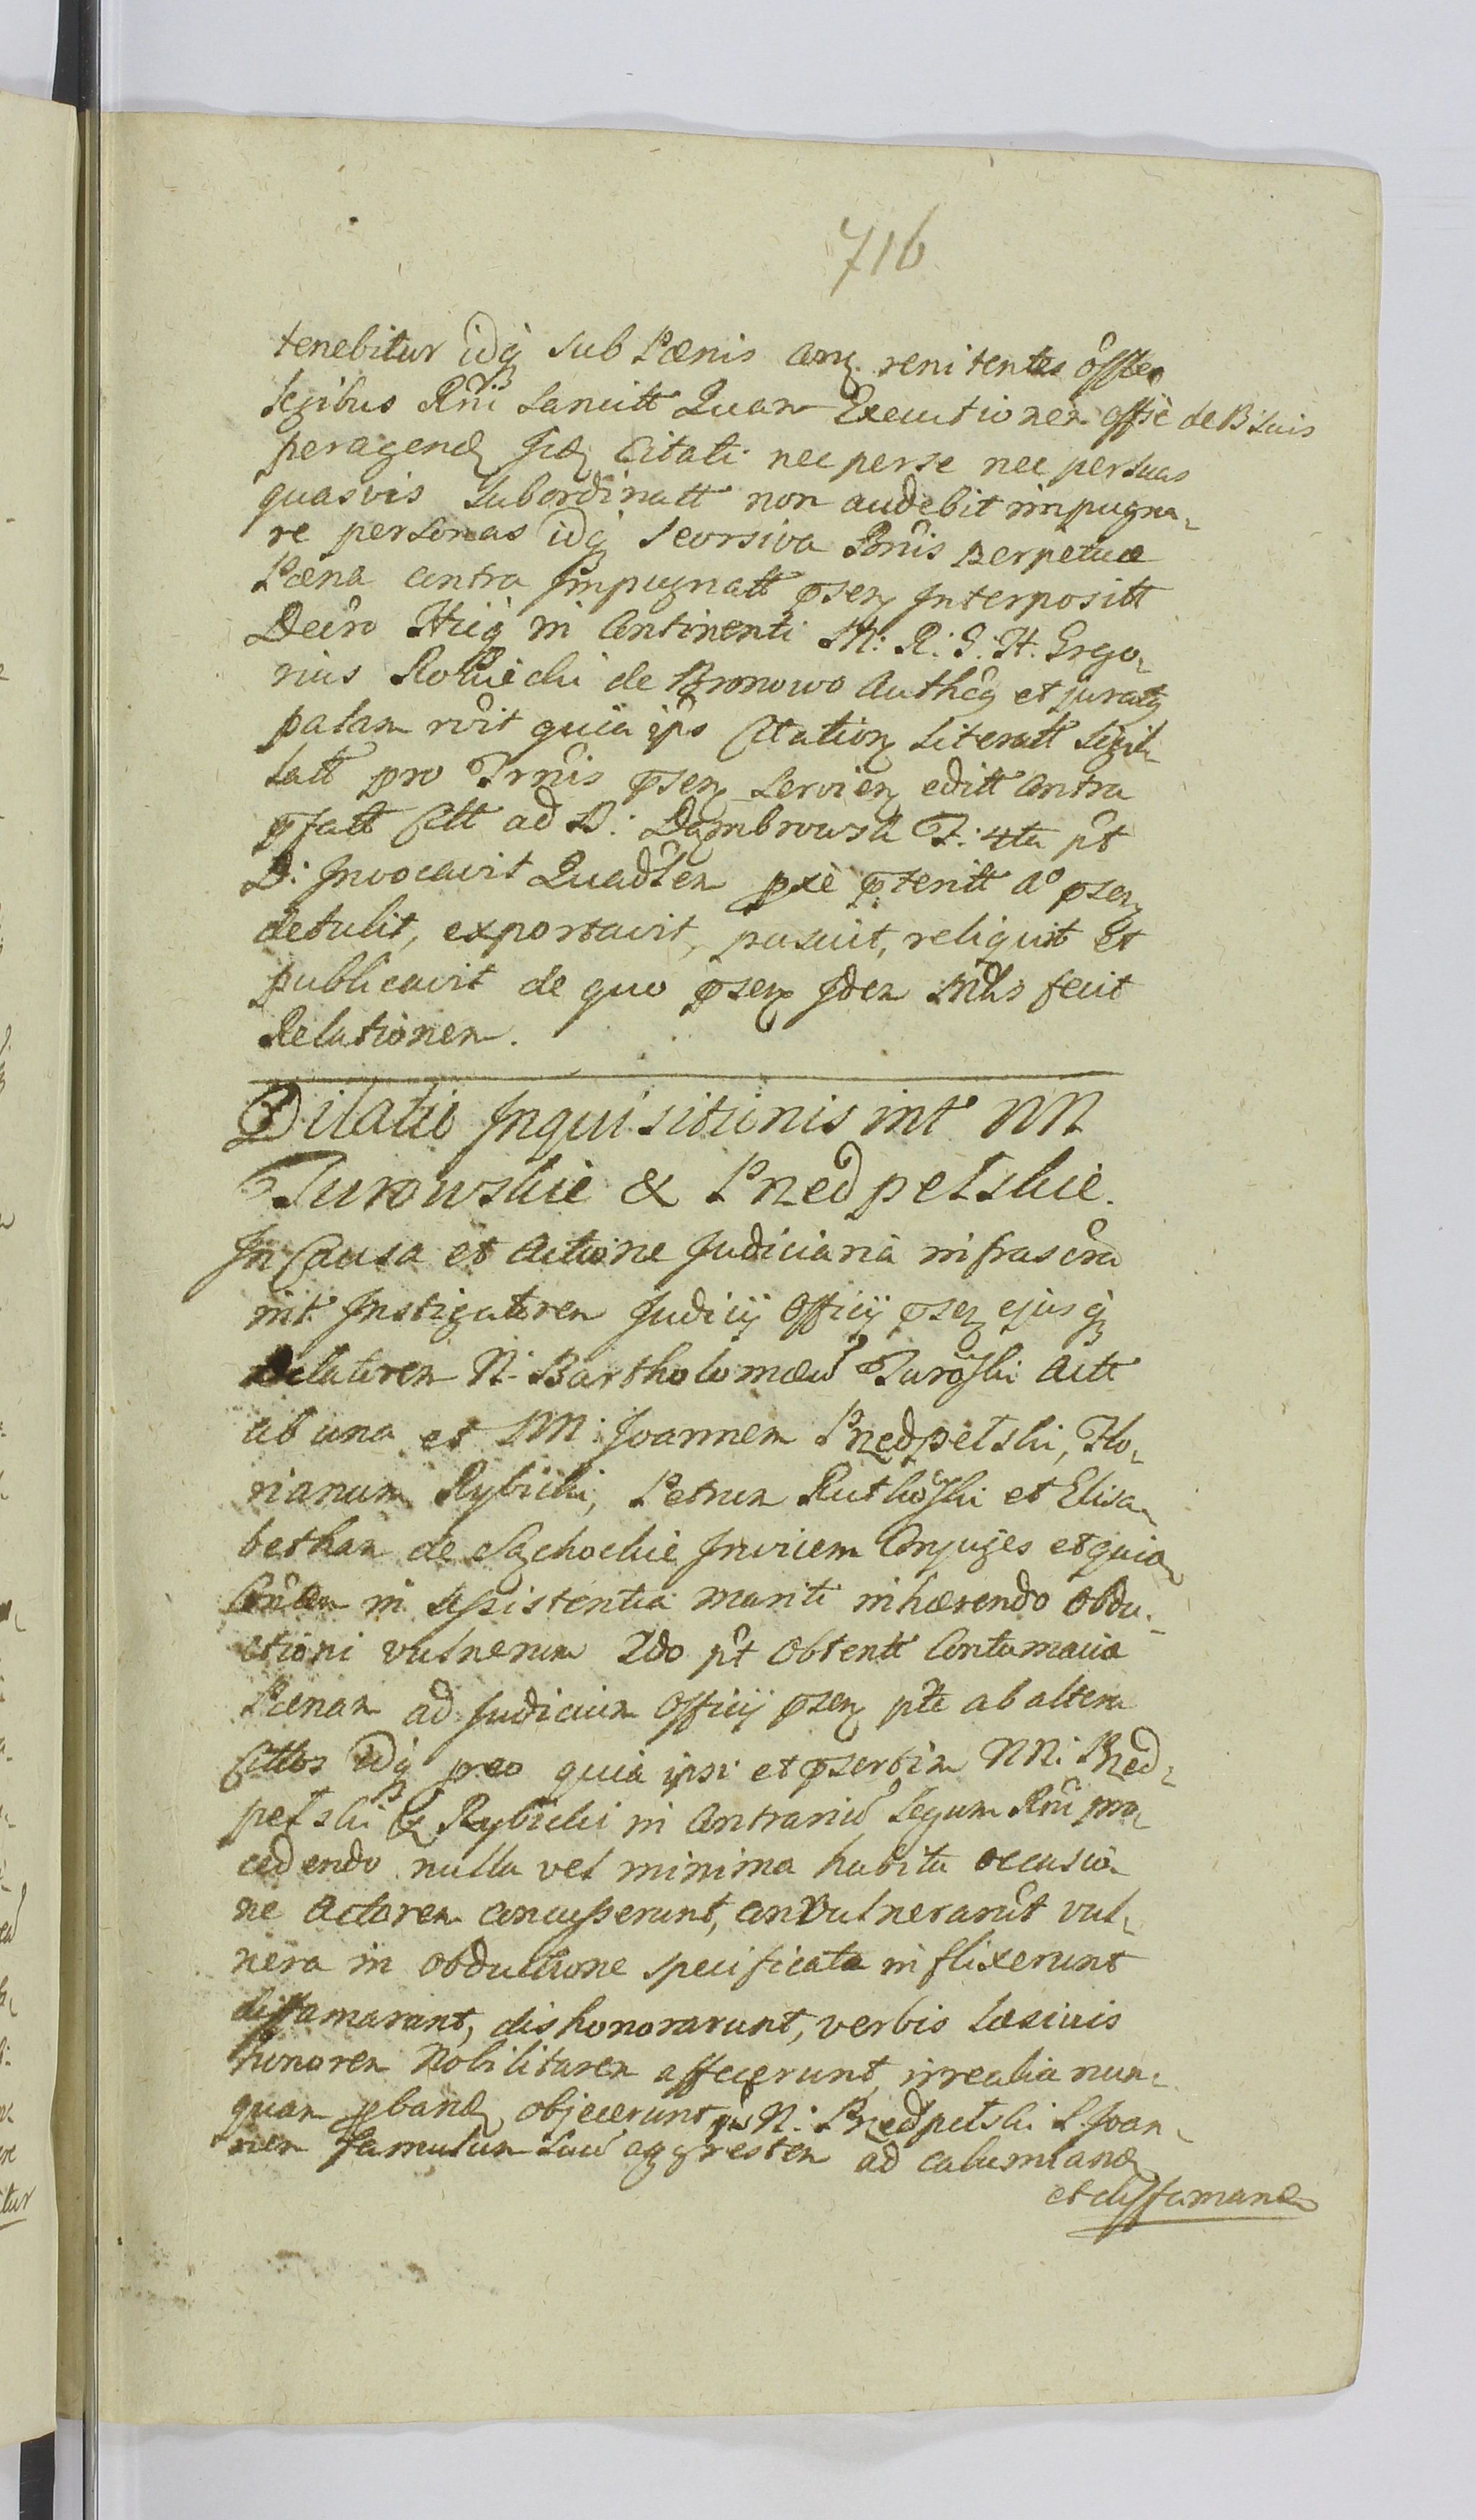 716
tenebitur idq sub Pœnis contra renitentes offles
legibus Rni Sancitt Quam Executionem offiē de B: suis
peragend Jidem Citati nec per se nec per suas
quasvis Subordinatt non audebit impugna-
re personas idq seorsiva Bnis Perpetuæ
Pœna contra Impugnatt psen Interpositt
Decro Hicq in Continenti M: R: G: H. Grego-
rius Rokicki de Bronowo Authcq et juratq
palam rvit quia ipse Citation Literatt Sigil-
latt pro Trnis psen servien editt contra
pfatt Citt ad B: Dąmbrowsk F: 4ta pt
D: Invocavit Quadlem pxe pteritt Ao psen
detulit, exportavit, posuit, reliquit et
publicavit de quo psen Jdem Mlis fecit
Relationem.
Dilatio Inquisitionis int NN
Turowskie & Przedpełskie.
In Causa et Actione Judiciaria infrascra
int Instigatorem Judicij Officij psen ejusq
Delatorem N: Bartholomeu Turoski Actt
ab una et NN: Joannem Przedpełski, Flo-
rianum Rybicki, Petrum Rutkoski et Elisa-
betham de Sąchockie Invicem Conjuges et quia
Contem in Assistentia mariti inhærendo Obdu-
ctioni vulnerum 2do pt Obtentt Contumacia
Pœnam ad Judicium Officij psen pte ab altera
Cittos idq preo quia ipsi et psertim NN: Przed-
pełski & Rybicki in Contrariu Legum Rni pro-
cedendo nulla vel minima habita occasio-
ne Actorem concusserunt, convulnerarut vul-
nera in Obductione specificata inflixerunt
diffamarunt, dishonorarunt, verbis læsivis
honorem Nobilitarem affecerunt, irrealia nun-
quam pband objecerunt N: Przedpełski L. Joan-
nem famulum suu aggrestem ad calumniand
et diffamand